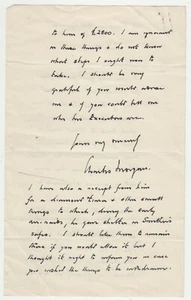 to him of £2800. I am ignorant
in these things & do not know
what steps I ought now to
take. I should be very
grateful if you would advise
me & if you could tell me
who his Executors are.
Yours very sincerely
Charles Morgan
I have also a receipt from him
for a diamond & other small
things to which, during the early
he gave shelter in
safe. I should like them to remain
there if you would allow it but I
thought it right to inform you in case
you wished the things to be withdrawn.